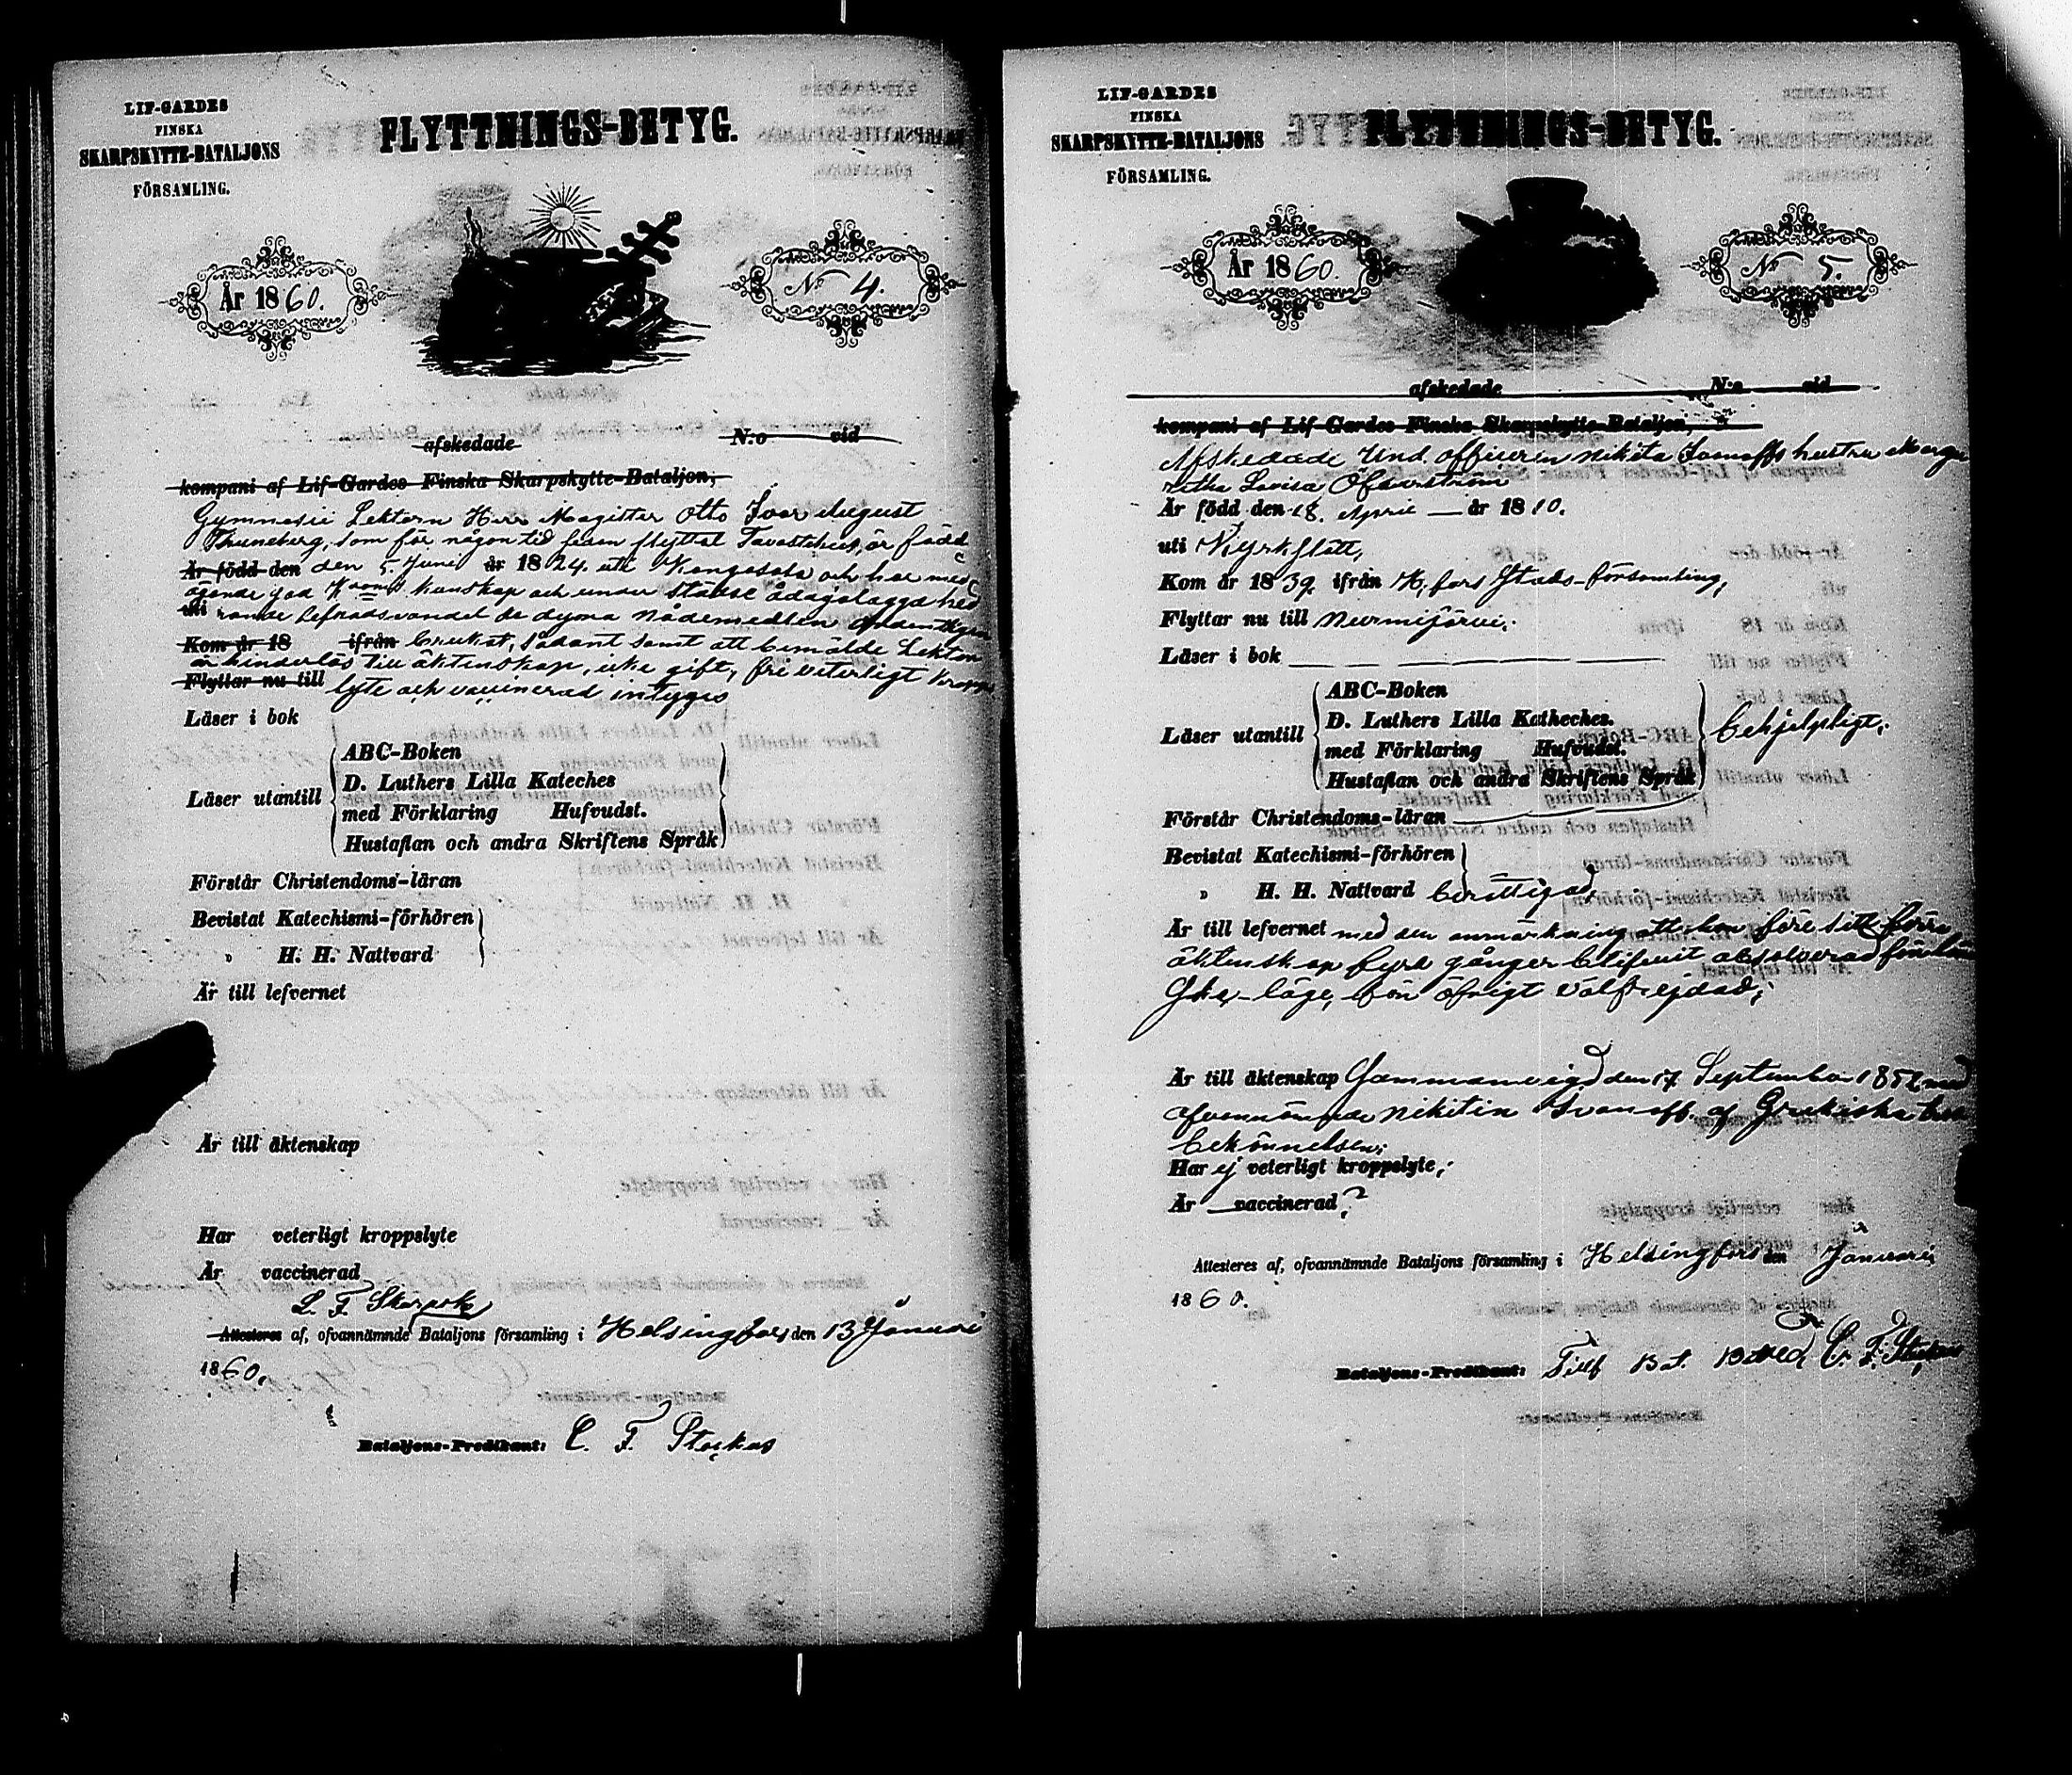 LIF-GARDES
FINSKA
SKARPSKYTTE-BATALJONS
FÖRSAMLING.
FLYTTNINGS-BETYG.
År 1860.
No 4.
afskedade N:o vid
kompani af Lif-Gardes Finska Skarpskytte-Bataljon,
Gymnasii Lektorn Herr Magister Otto Ivar August
Thuneberg, som för någon tid sedan flyttat Tavastehus, är född
Är född den den 5 Juni år 1824 uti Kangasala och har med
ägande god kunskap och under städse ådagalagd hed
uti rande lefnadsvandel de dyra Nådemedlen
Kom år 18 ifrån brukat, sådant samt att bemälde Lektor
är hinderlös till äktenskap, icke gift, fri veterligt kropps
Flyttar nu till lyte och vaccinerad intygas
Läser i bok
Läser utantill
ABC-Boken
D. Luthers Lilla Kateches
med Förklaring Hufvudst.
Hustaflan och andra Skriftens Språk
Förstår Christendoms-läran
Bevistat Katechismi-förhören
" H. H. Nattvard
Är till lefvernet
Är till äktenskap
Har veterligt kroppslyte
Är vaccinerad
L. F. Skarpsk
Attesteres af, ofvannämnde Bataljons församling i Helsingfors den 13 Januari
1860.
Bataljons-Predikant: C. F. Stockus
LIF-GARDES
FINSKA
SKARPSKYTTE-BATALJONS
FÖRSAMLING.
FLYTTNINGS-BETYG.
År 1860.
No 5.
afskedade N:o vid
kompani af Lif-Gardes Finska Skarpskytte-Bataljon,
Afskedade Und. officeren Nikita Ivanoffs hustru Marga
retha Lovisa Öfverström
Är född den 18 April år 1810.
uti Kyrkslätt,
Kom år 1839 ifrån H:fors Stads-församling,
Flyttar nu till Nurmijärvi;
Läser i bok
Läser utantill
ABC-Boken
D. Luthers Lilla Katheches.
med Förklaring Hufvudst.
Hustaflan och andra Skriftens Språk
behjelpligt;
Förstår Christendoms-läran
Bevistat Katechismi-förhören
" H. H. Nattvard berättigad
Är till lefvernet med den anmärkning att hon före sitt förra
äktenskap fyra gånger blifvit absolverad för lön
ska-läge, för öfrigt välfrejdad;
Är till äktenskap Sammanvigd den 17 September 1852 med
ofvannämnde Nikitin Ivanoff af Grekiska tros
bekännelsen;
Har ej veterligt kroppslyte;
Är vaccinerad?
Attesteres af, ofvannämnde Bataljons församling i Helsingfors den Januari
1860.
Bataljons-Predikant: Tillf Bat. Pred. C. F. Stockus